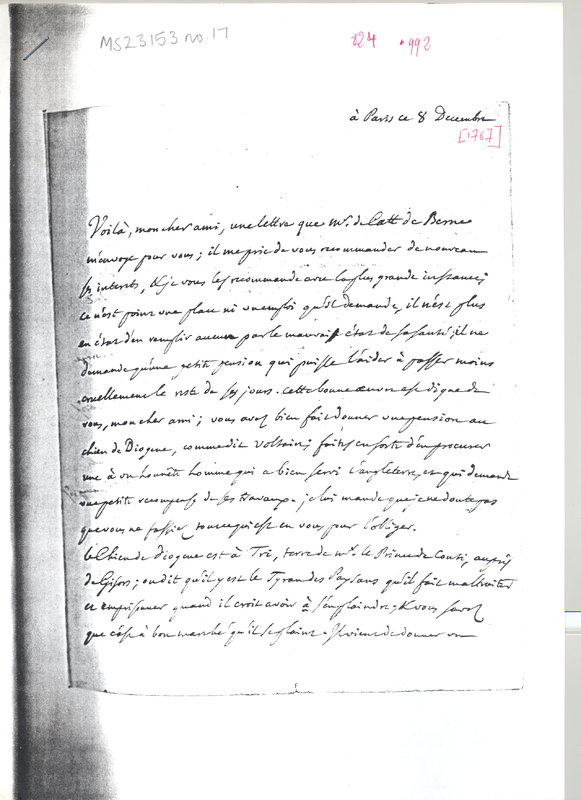 MS23153 no.17
224 .992
à Paris ce 8 Decembre
[1767]
Voilà, mon cher ami, une lettre que mr. de Catt de Berne
m'envoye pour vous; il me prie de vous recommander de nouveau
ses interets, & je vous les recommande avec la plus grande instance;
ce n'est point une place ni un emploi qu'il demande, il n'est plus
en état d'en remplir aucun par le mauvais état de sa santé; il ne
demande qu'une petite pension qui puisse l'aider à passer moins
cruellement le reste de ses jours. cette bonne œuvre est digne de
vous, mon cher ami; vous avez bien fait donner une pension au
chien de Diogene, comme dit Voltaire; faites en sorte d'en procurer
une à un honnête homme qui a bien servi l'angleterre, et qui demande
une petite recompense de ses travaux. je lui mande que je ne doute pas
que vous ne fassiez tout ce qui est en vous pour l'obliger.
le Chien de diogene est à Tri, terre de mr. le Prince de Conti, auprès
de Gisors; on dit qu'il y est le Tyran des Paysans qu'il fait maltraiter
et emprisonner quand il croit avoir à s'en plaindre; & vous savez
que c'est à bon marché qu'il se plaint. Il vient de donner un